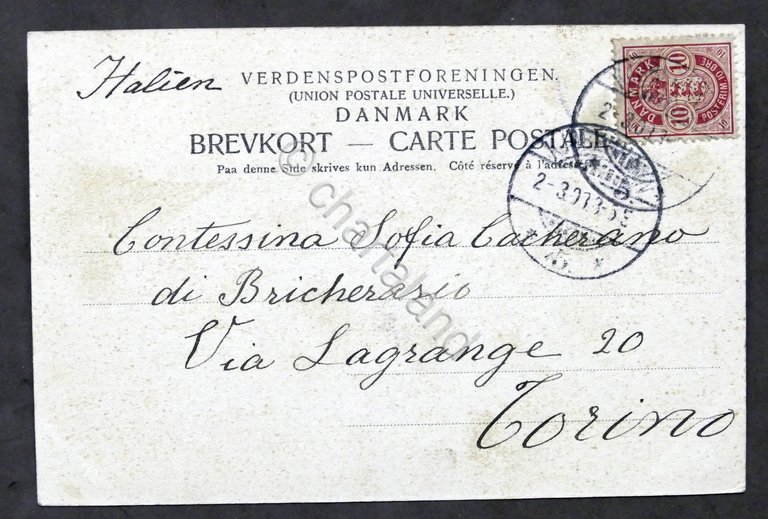 Halien
VERDENSPOSTFORENINGEN.
(UNION POSTALE UNIVERSELLE.)
DANMARK
BREVKORT — CARTE POSTALE
Paa denne Side skrives kun Adressen. Côté réservé à l'adresse.
DANMARK 10 10 POSTFRIM 10 ØRE
2-3.01.3
Contessina Sofia Cacherano
di Bricherasio
Via Lagrange 20
Torino
© chartaland